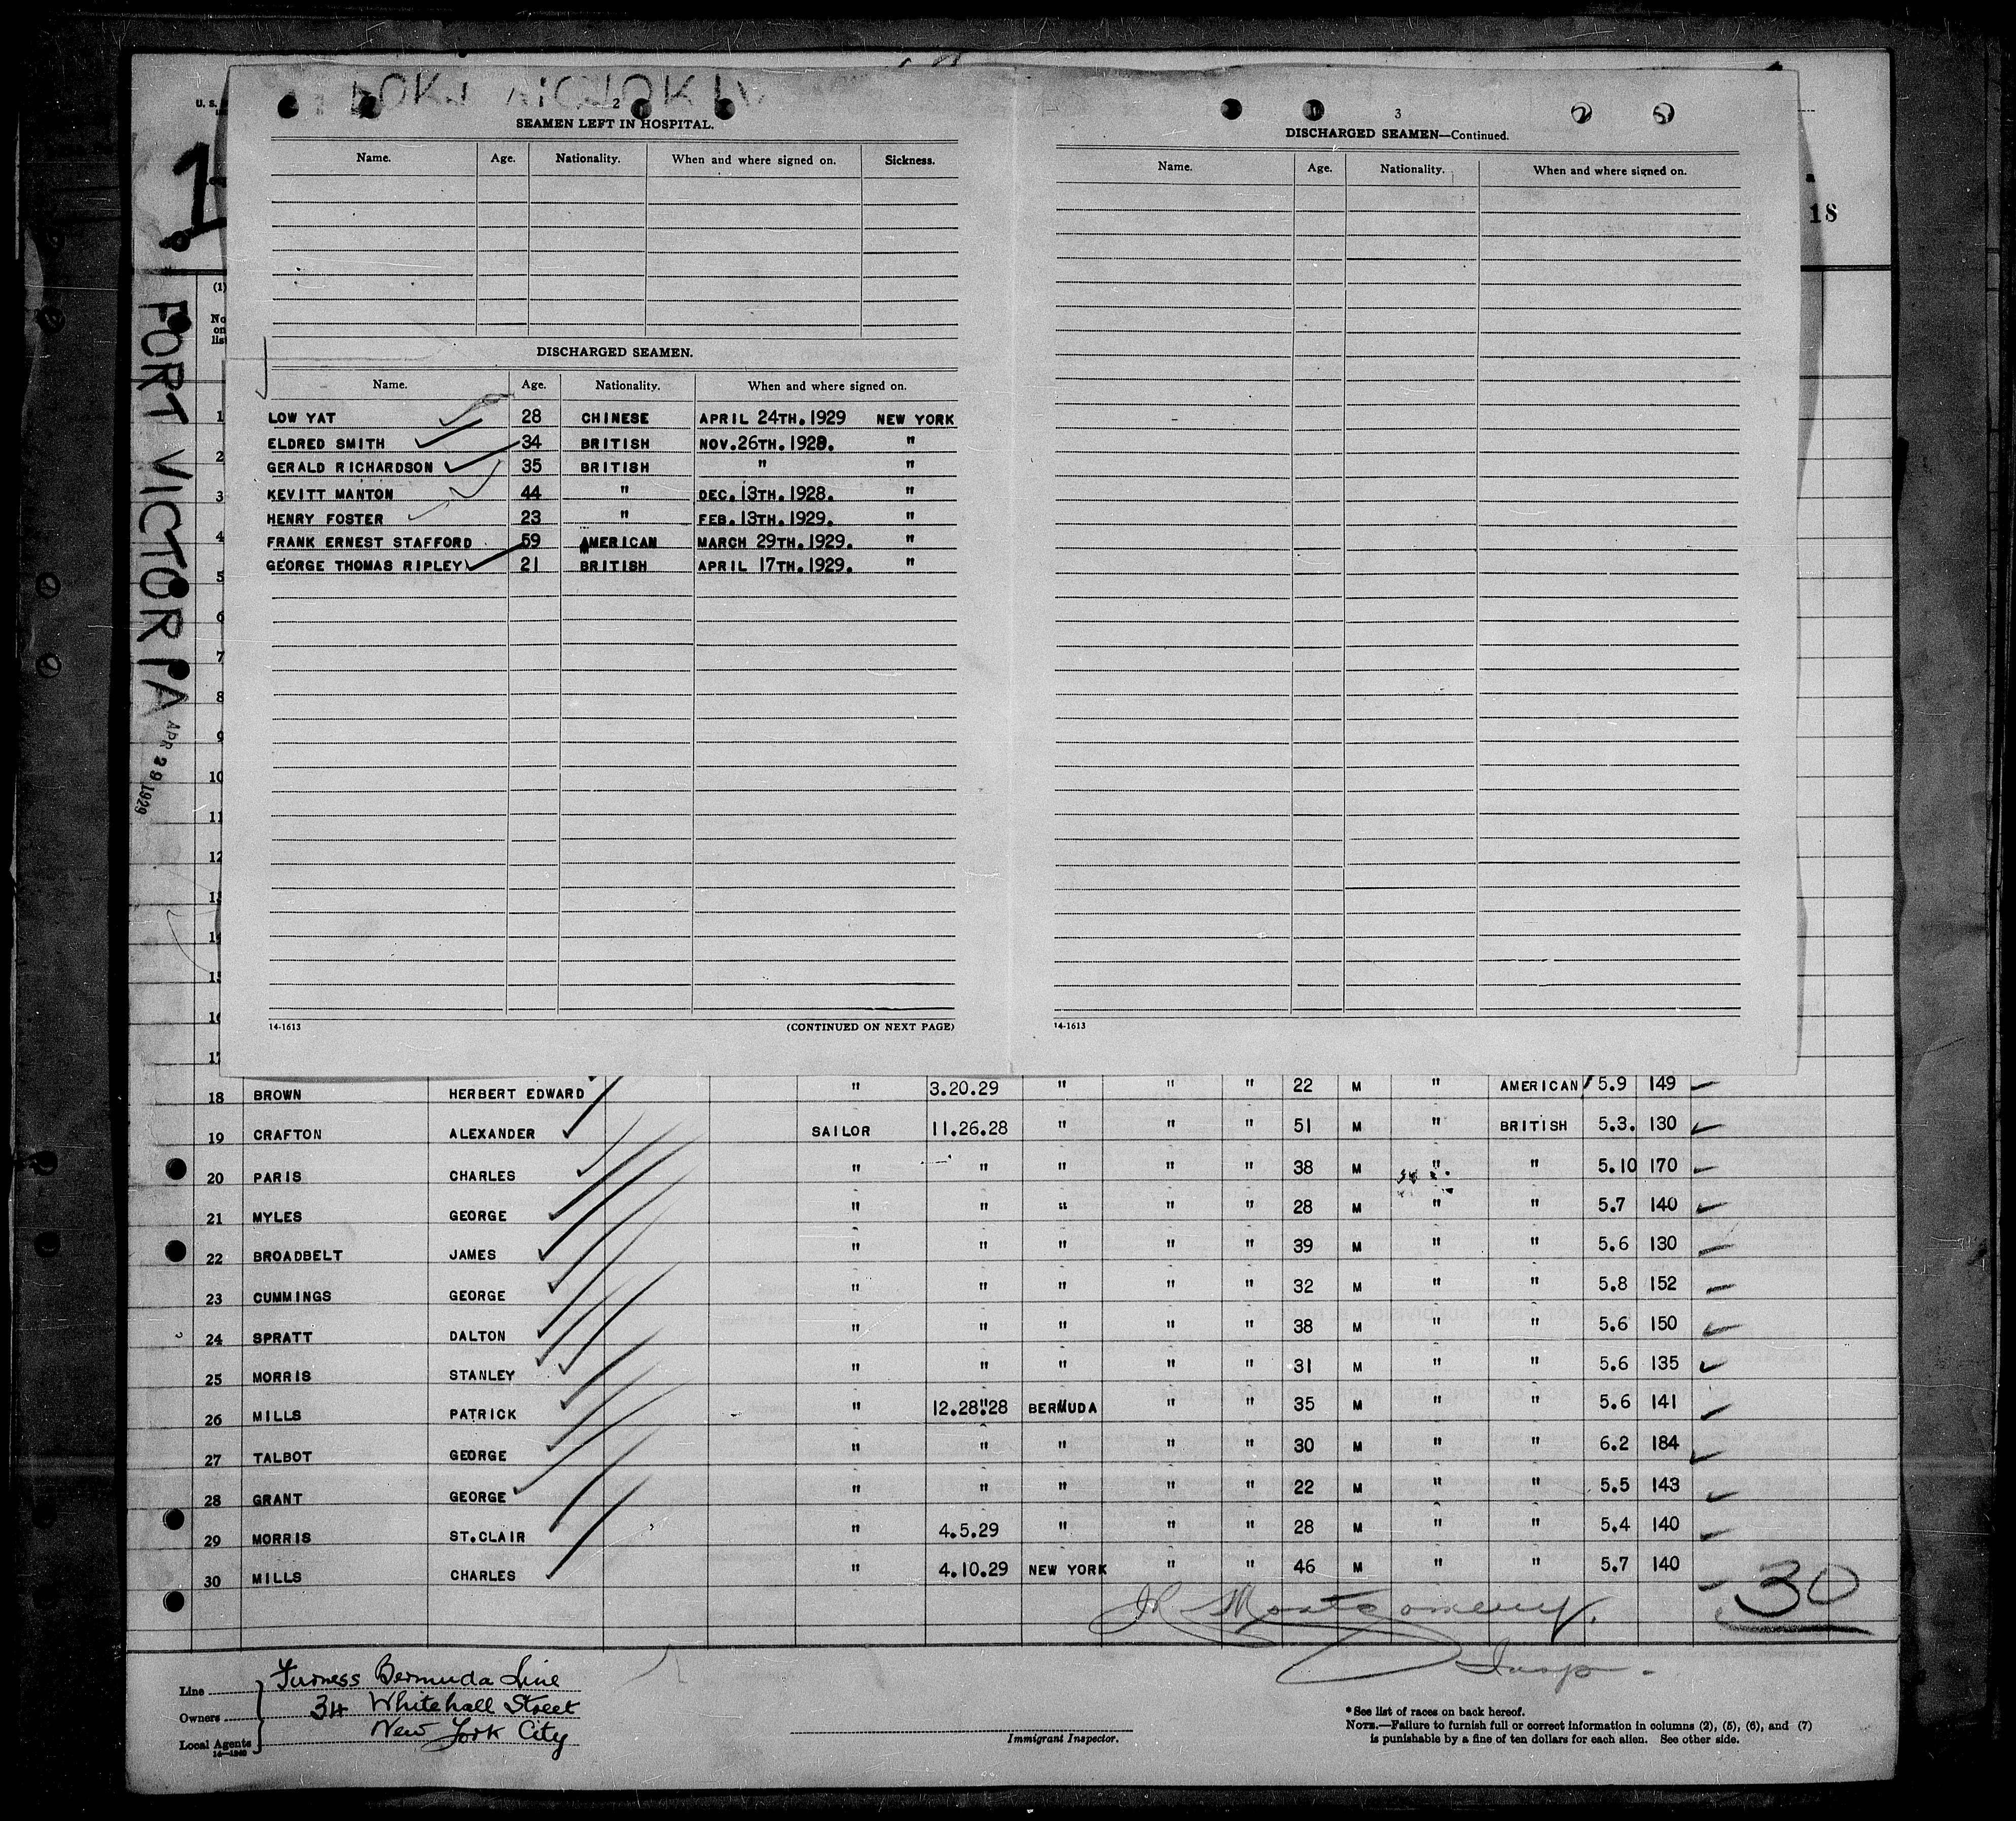 U. S.
1
FORT VICTORIA
APR 29 1929
18
2
SEAMEN LEFT IN HOSPITAL.
Name. Age. Nationality. When and where signed on. Sickness.
DISCHARGED SEAMEN.
Name. Age. Nationality. When and where signed on.
LOW YAT 28 CHINESE APRIL 24TH.1929 NEW YORK
ELDRED SMITH 34 BRITISH NOV.26TH.1928. "
GERALD RICHARDSON 35 BRITISH " "
KEVITT MANTON 44 " DEC.13TH.1928. "
HENRY FOSTER 23 " FEB.13TH.1929. "
FRANK ERNEST STAFFORD 59 AMERICAN MARCH 29TH.1929. "
GEORGE THOMAS RIPLEY 21 BRITISH APRIL 17TH.1929. "
14-1613 (CONTINUED ON NEXT PAGE)
3 2 5
DISCHARGED SEAMEN—Continued.
Name. Age. Nationality. When and where signed on.
14-1613
(1)
No
on
list
1
2
3
4
5
6
7
8
9
10
11
12
18 BROWN HERBERT EDWARD " 3.20.29 " " " 22 M " AMERICAN 5.9 149
19 CRAFTON ALEXANDER SAILOR 11.26.28 " " " 51 M " BRITISH 5.3. 130
20 PARIS CHARLES " " " " " 38 M " " 5.10 170
21 MYLES GEORGE " " " " " 28 M " " 5.7 140
22 BROADBELT JAMES " " " " " 39 M " " 5.6 130
23 CUMMINGS GEORGE " " " " " 32 M " " 5.8 152
24 SPRATT DALTON " " " " " 38 M " " 5.6 150
25 MORRIS STANLEY " " " " " 31 M " " 5.6 135
26 MILLS PATRICK " 12.28.28 BERMUDA " " 35 M " " 5.6 141
27 TALBOT GEORGE " " " " " 30 M " " 6.2 184
28 GRANT GEORGE " " " " " 22 M " " 5.5 143
29 MORRIS ST.CLAIR " 4.5.29 " " " 28 M " " 5.4 140
30 MILLS CHARLES " 4.10.29 NEW YORK " " 46 M " " 5.7 140
30
Montgomery.
Insp.
Line Furness Bermuda Line
Owners 34 Whitehall Street
Local Agents New York City
Immigrant Inspector.
*See list of races on back hereof.
NOTE.—Failure to furnish full or correct information in columns (2), (5), (6), and (7)
is punishable by a fine of ten dollars for each alien. See other side.